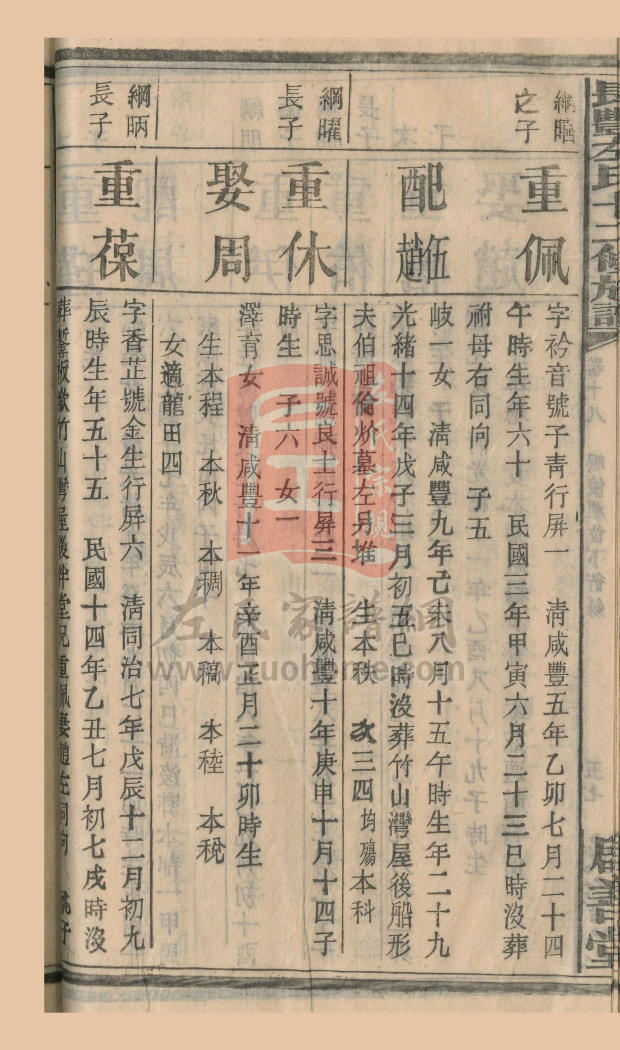 長豐左氏十二修族譜
卷十八
五七
啟善堂
綱
之子
重佩
字衿音號子青行屏一 清咸豐五年乙卯七月二十四
午時生年六十 民國三年甲寅六月二十三巳時沒葬
祔母右同向 子五
配伍
趙
岐一女 清咸豐九年己未八月十五午時生年二十九
光緒十四年戊子三月初五巳時沒葬竹山灣屋後船形
夫伯祖倫炌墓左另堆 生本秩 次三四均殤本科
綱曜
長子
重休
字思誠號良士行屏三 清咸豐十年庚申十月十四子
時生 子六 女一
娶周
澤育女 清咸豐十一年辛酉正月二十卯時生
生本程 本秋 本稠 本稿 本稑 本稅
女適龍田四
綱昞
長子
重葆
字香芷號金生行屏六 清同治七年戊辰十二月初九
辰時生年五十五 民國十四年乙丑七月初七戌時沒
竹山灣屋後 堂兄重佩妻趙左同向 祧子
左氏宗親
左氏家譜網
www.zuohome.com